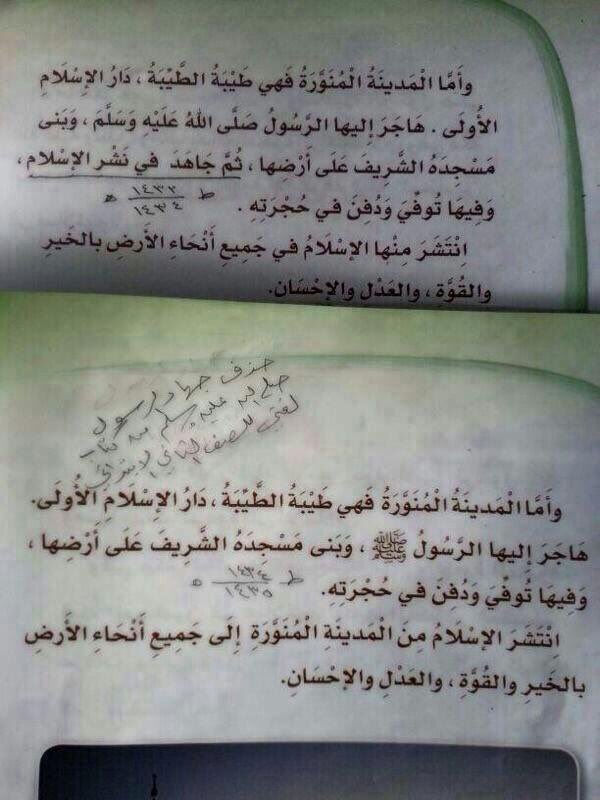 وأَمَّا الْمَدينَةُ الْمُنَوَّرَةُ فَهي طَيْبَةُ الطَّيِّبَةُ ، دَارُ الإِسْلَامِ
الأُولَى . هَاجَرَ إِليها الرَّسُولُ صَلَّى اللهُ عَلَيْهِ وَسَلَّمَ ، وَبَنى
مَسْجِدَهُ الشَّرِيفَ عَلَى أَرْضِها ، ثُمَّ جَاهَدَ في نَشْرِ الإِسْلامِ ،
وَفيهَا تُوفِّيَ وَدُفِنَ في حُجْرَتِهِ .
ط ١٤٣٣ هـ
١٤٣٤
اِنْتَشَرَ مِنْها الإِسْلَامُ في جَمِيعِ أَنْحَاءِ الأَرضِ بالخَيرِ
والقُوَّةِ ، والعَدْلِ والإِحْسَانِ.
حذف جهاد الرسول
صلى الله عليه وسلم من كتاب
لغتي للصف الثاني الابتدائي
وأَمَّا الْمَدينَةُ الْمُنَوَّرَةُ فَهي طَيْبَةُ الطَّيِّبَةُ ، دَارُ الإِسْلَامِ الأُولَى.
هَاجَرَ إِليها الرَّسُولُ ﷺ ، وَبَنى مَسْجِدَهُ الشَّرِيفَ عَلَى أَرْضِها ،
وَفيهَا تُوفِّيَ وَدُفِنَ في حُجْرَتِهِ.
ط ١٤٣٤ هـ
١٤٣٥
اِنْتَشَرَ الإِسْلَامُ مِنَ الْمَدينَةِ الْمُنَوَّرَةِ إِلَى جَمِيعِ أَنْحَاءِ الأَرضِ
بالخَيرِ والقُوَّةِ ، والعَدْلِ والإِحْسَانِ.